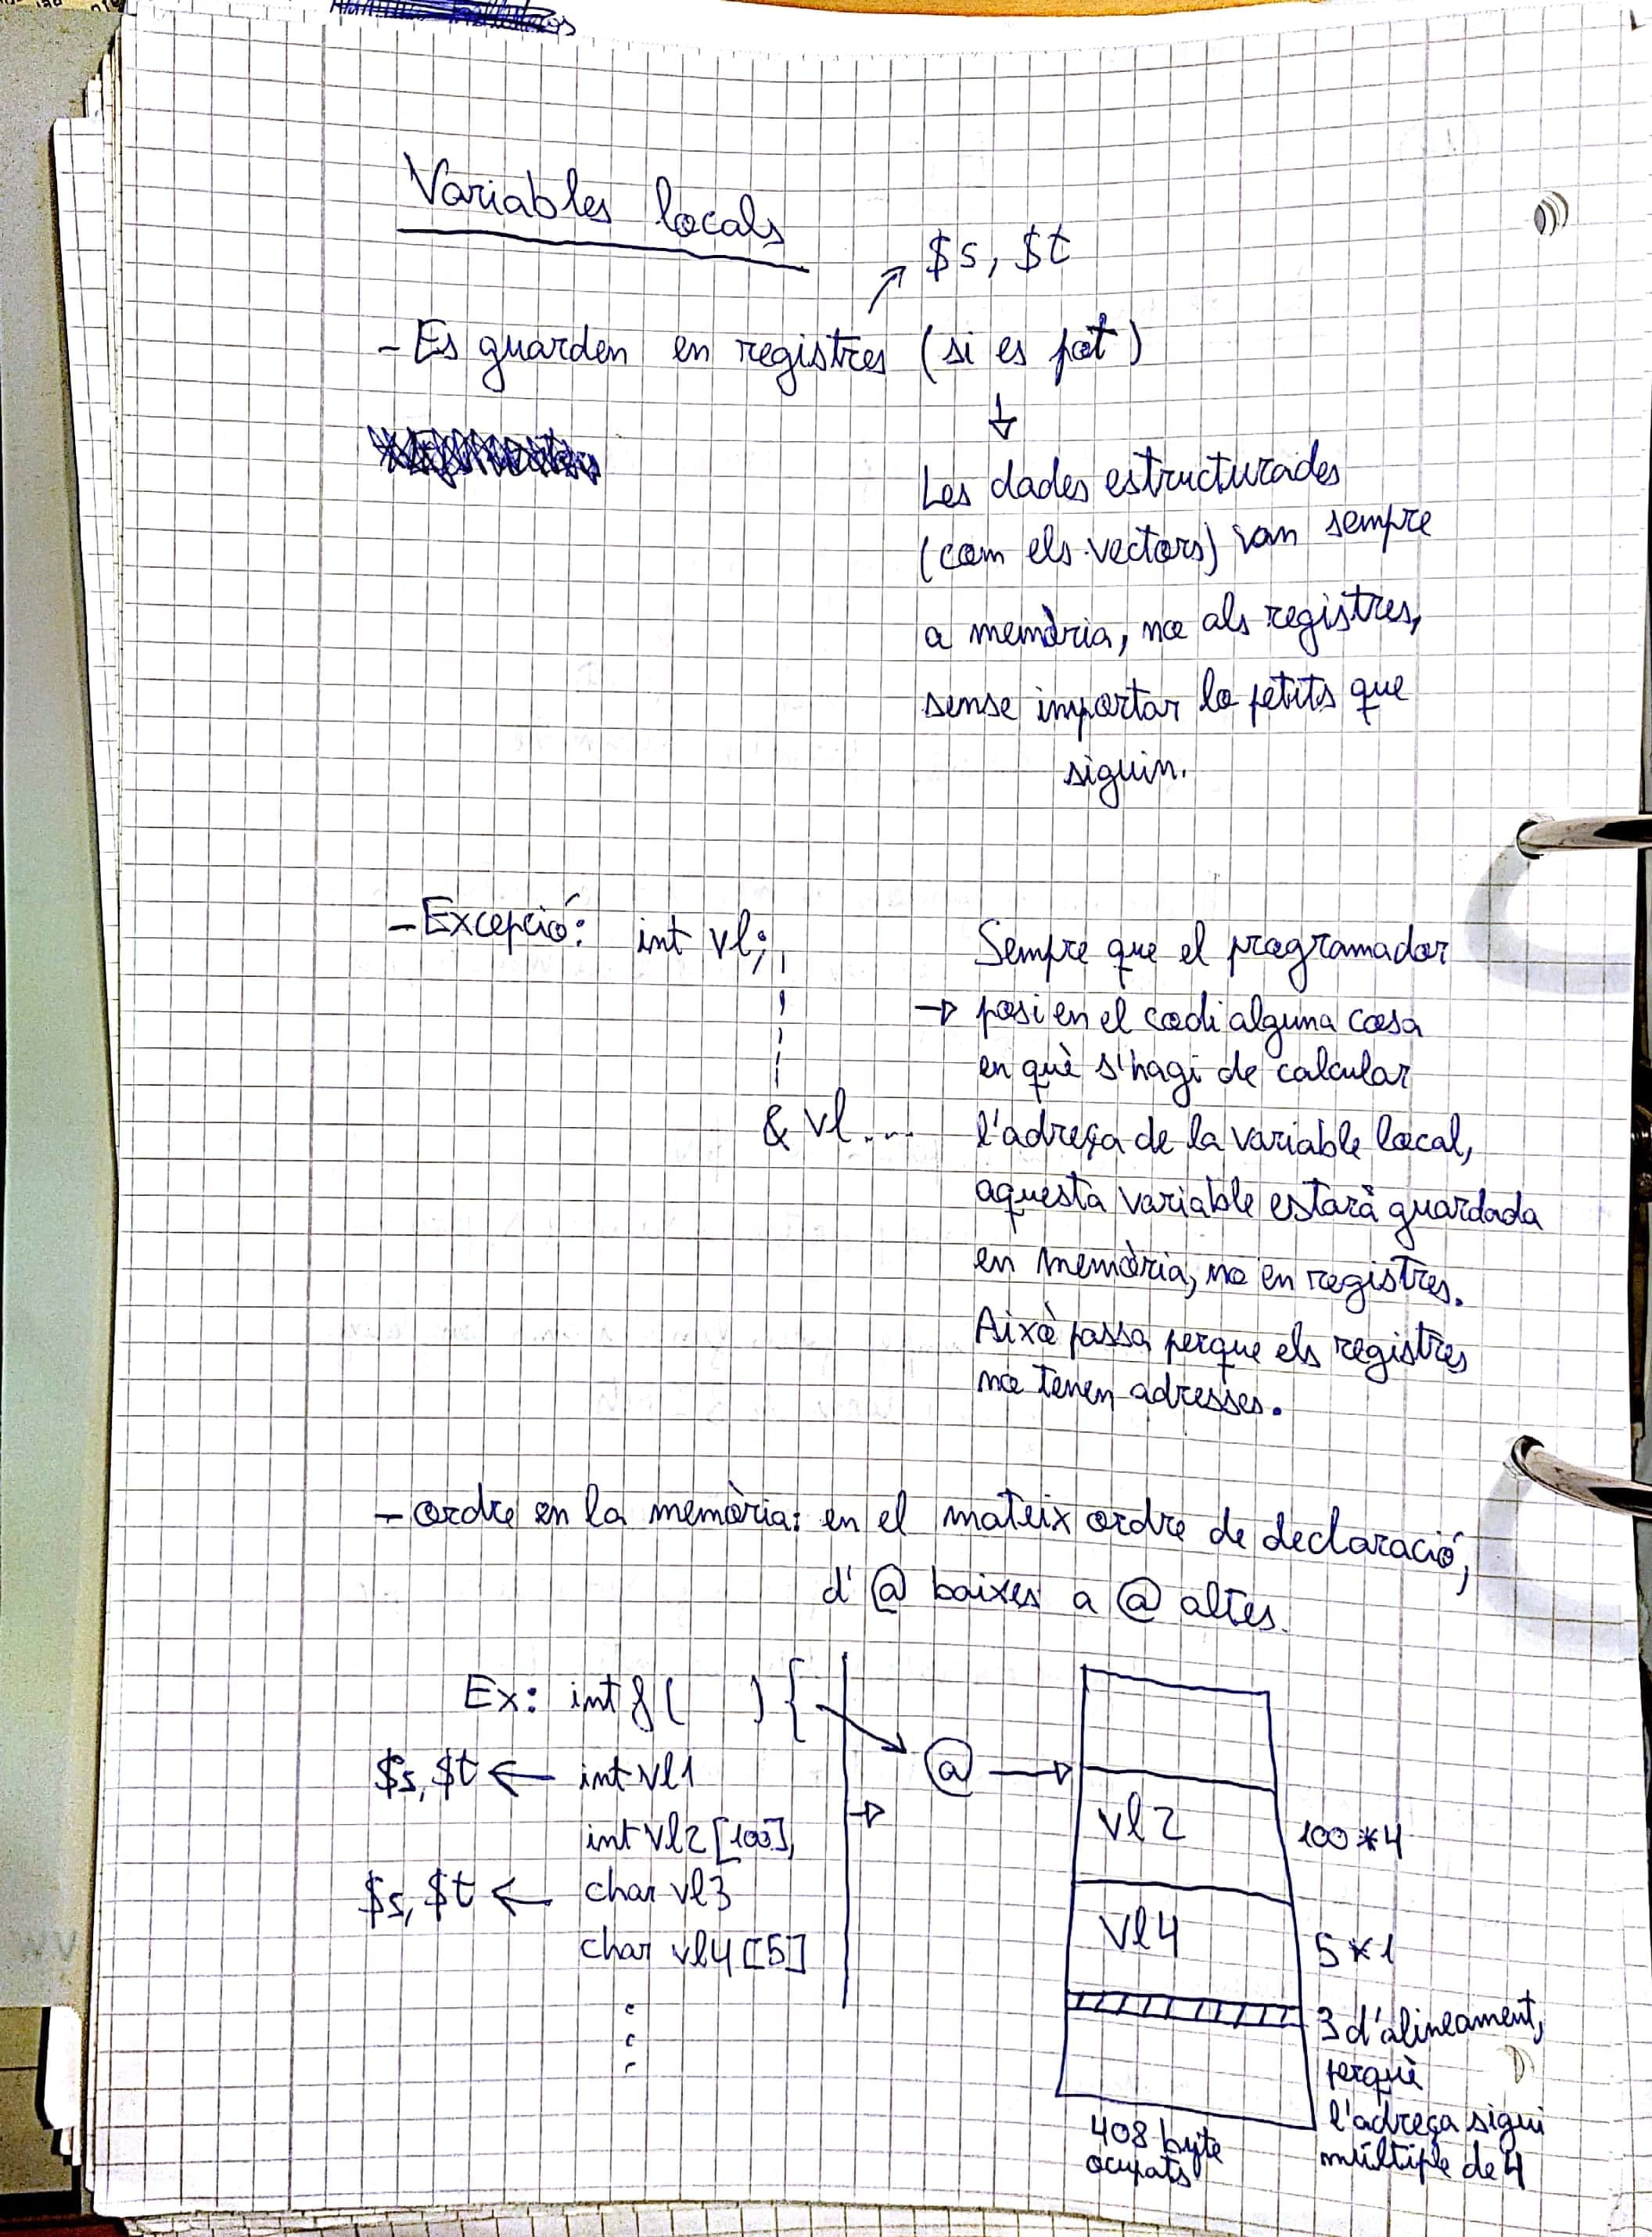 Variables locals
$s, $t
- Es guarden en registres (si es pot)
Les dades estructurades
(com els vectors) van sempre
a memòria, no als registres,
sense importar lo petits que
siguin.
- Excepció: int vl;
& vl...
Sempre que el programador
posi en el codi alguna cosa
en què s'hagi de calcular
l'adreça de la variable local,
aquesta variable estarà guardada
en memòria, no en registres.
Això passa perque els registres
no tenen adresses.
- ordre en la memòria: en el mateix ordre de declaració,
d'@ baixes a @ altes.
Ex: int f( ) {
$s, $t ← int vl1
int vl2 [100],
$s, $t ← char vl3
char vl4 [5]
@
vl2
100*4
vl4
5*1
3 d'alineament,
perquè
l'adreça sigui
múltiple de 4
408 byte
ocupats